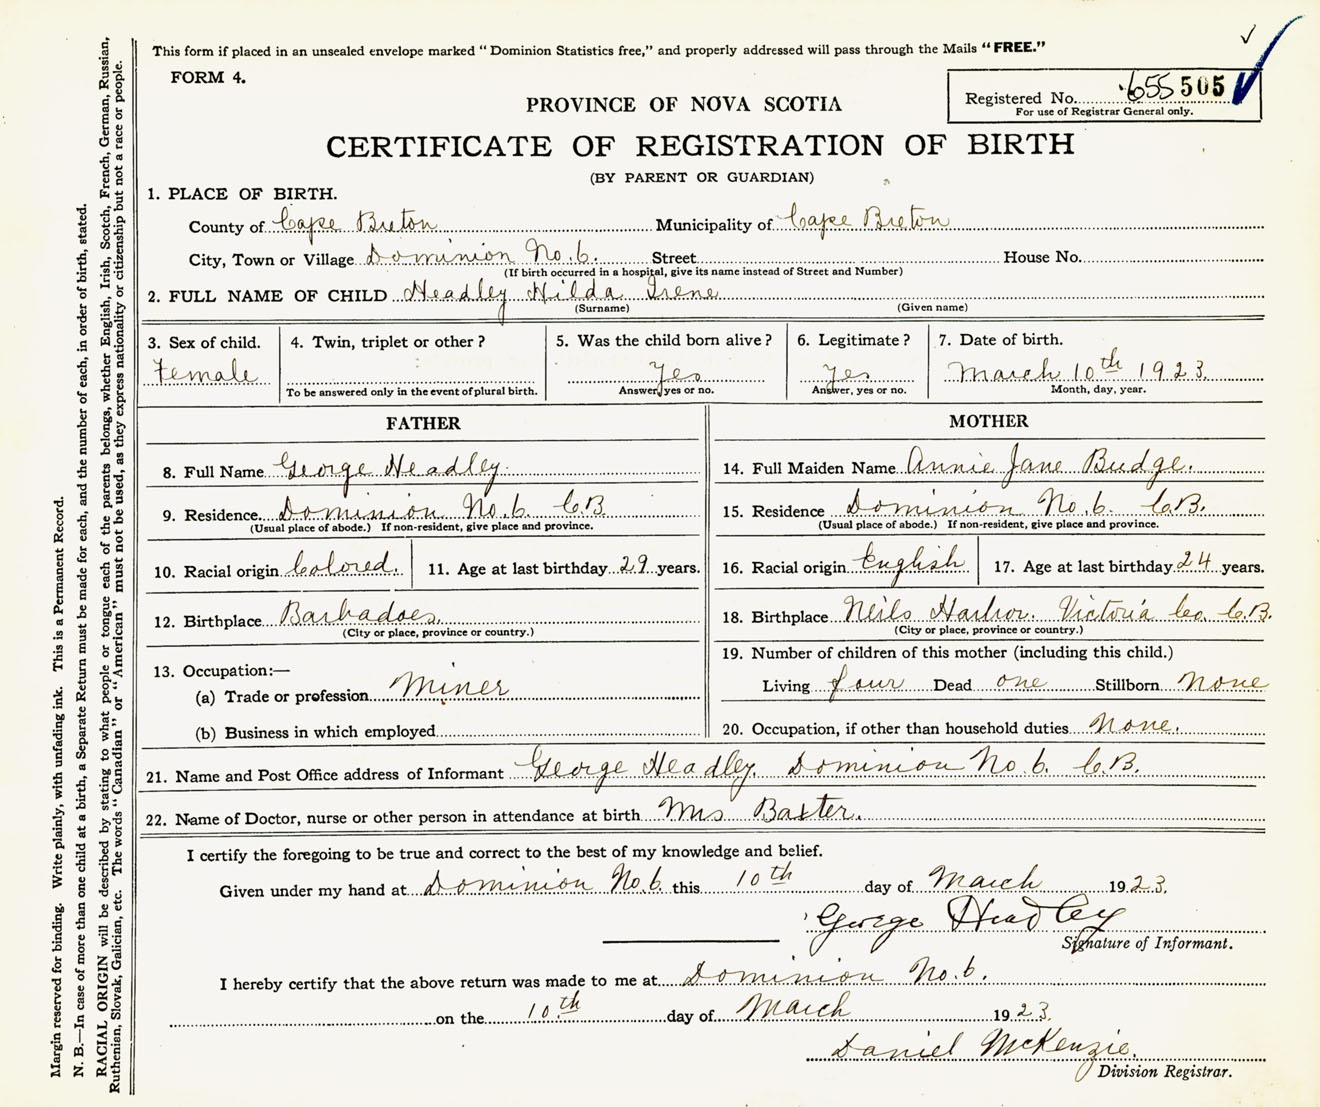 This form if placed in an unsealed envelope marked “Dominion Statistics free,” and properly addressed will pass through the Mails “FREE.”
FORM 4.
Registered No. 655 505
For use of Registrar General only.
PROVINCE OF NOVA SCOTIA
CERTIFICATE OF REGISTRATION OF BIRTH
(BY PARENT OR GUARDIAN)
1. PLACE OF BIRTH.
County of Cape Breton Municipality of Cape Breton
City, Town or Village Dominion No. 6. Street House No.
(If birth occurred in a hospital, give its name instead of Street and Number)
2. FULL NAME OF CHILD Headley Hilda Irene
(Surname) (Given name)
3. Sex of child. 4. Twin, triplet or other? 5. Was the child born alive? 6. Legitimate? 7. Date of birth.
Female Yes Yes March 10th 1923.
To be answered only in the event of plural birth. Answer, yes or no. Answer, yes or no. Month, day, year.
FATHER
8. Full Name George Headley.
9. Residence. Dominion No. 6. C.B.
(Usual place of abode.) If non-resident, give place and province.
10. Racial origin Colored. 11. Age at last birthday 29 years.
12. Birthplace Barbadoes.
(City or place, province or country.)
13. Occupation:—
(a) Trade or profession Miner
(b) Business in which employed
MOTHER
14. Full Maiden Name Annie Jane Budge.
15. Residence Dominion No. 6. C.B.
(Usual place of abode.) If non-resident, give place and province.
16. Racial origin English 17. Age at last birthday 24 years.
18. Birthplace Neils Harbor. Victoria Co. C.B.
(City or place, province or country.)
19. Number of children of this mother (including this child.)
Living four Dead one Stillborn None
20. Occupation, if other than household duties None.
21. Name and Post Office address of Informant George Headley. Dominion No. 6. C.B.
22. Name of Doctor, nurse or other person in attendance at birth Mrs Baxter.
I certify the foregoing to be true and correct to the best of my knowledge and belief.
Given under my hand at Dominion No. 6. this 10th day of March 1923.
George Headley
Signature of Informant.
I hereby certify that the above return was made to me at Dominion No. 6.
on the 10th day of March 1923.
Daniel McKenzie.
Division Registrar.
Margin reserved for binding. Write plainly, with unfading ink. This is a Permanent Record.
N. B.—In case of more than one child at a birth, a Separate Return must be made for each, and the number of each, in order of birth, stated.
RACIAL ORIGIN will be described by stating to what people or tongue each of the parents belongs, whether English, Irish, Scotch, French, German, Russian,
Ruthenian, Slovak, Galician, etc. The words “Canadian” or “American” must not be used, as they express nationality or citizenship but not a race or people.